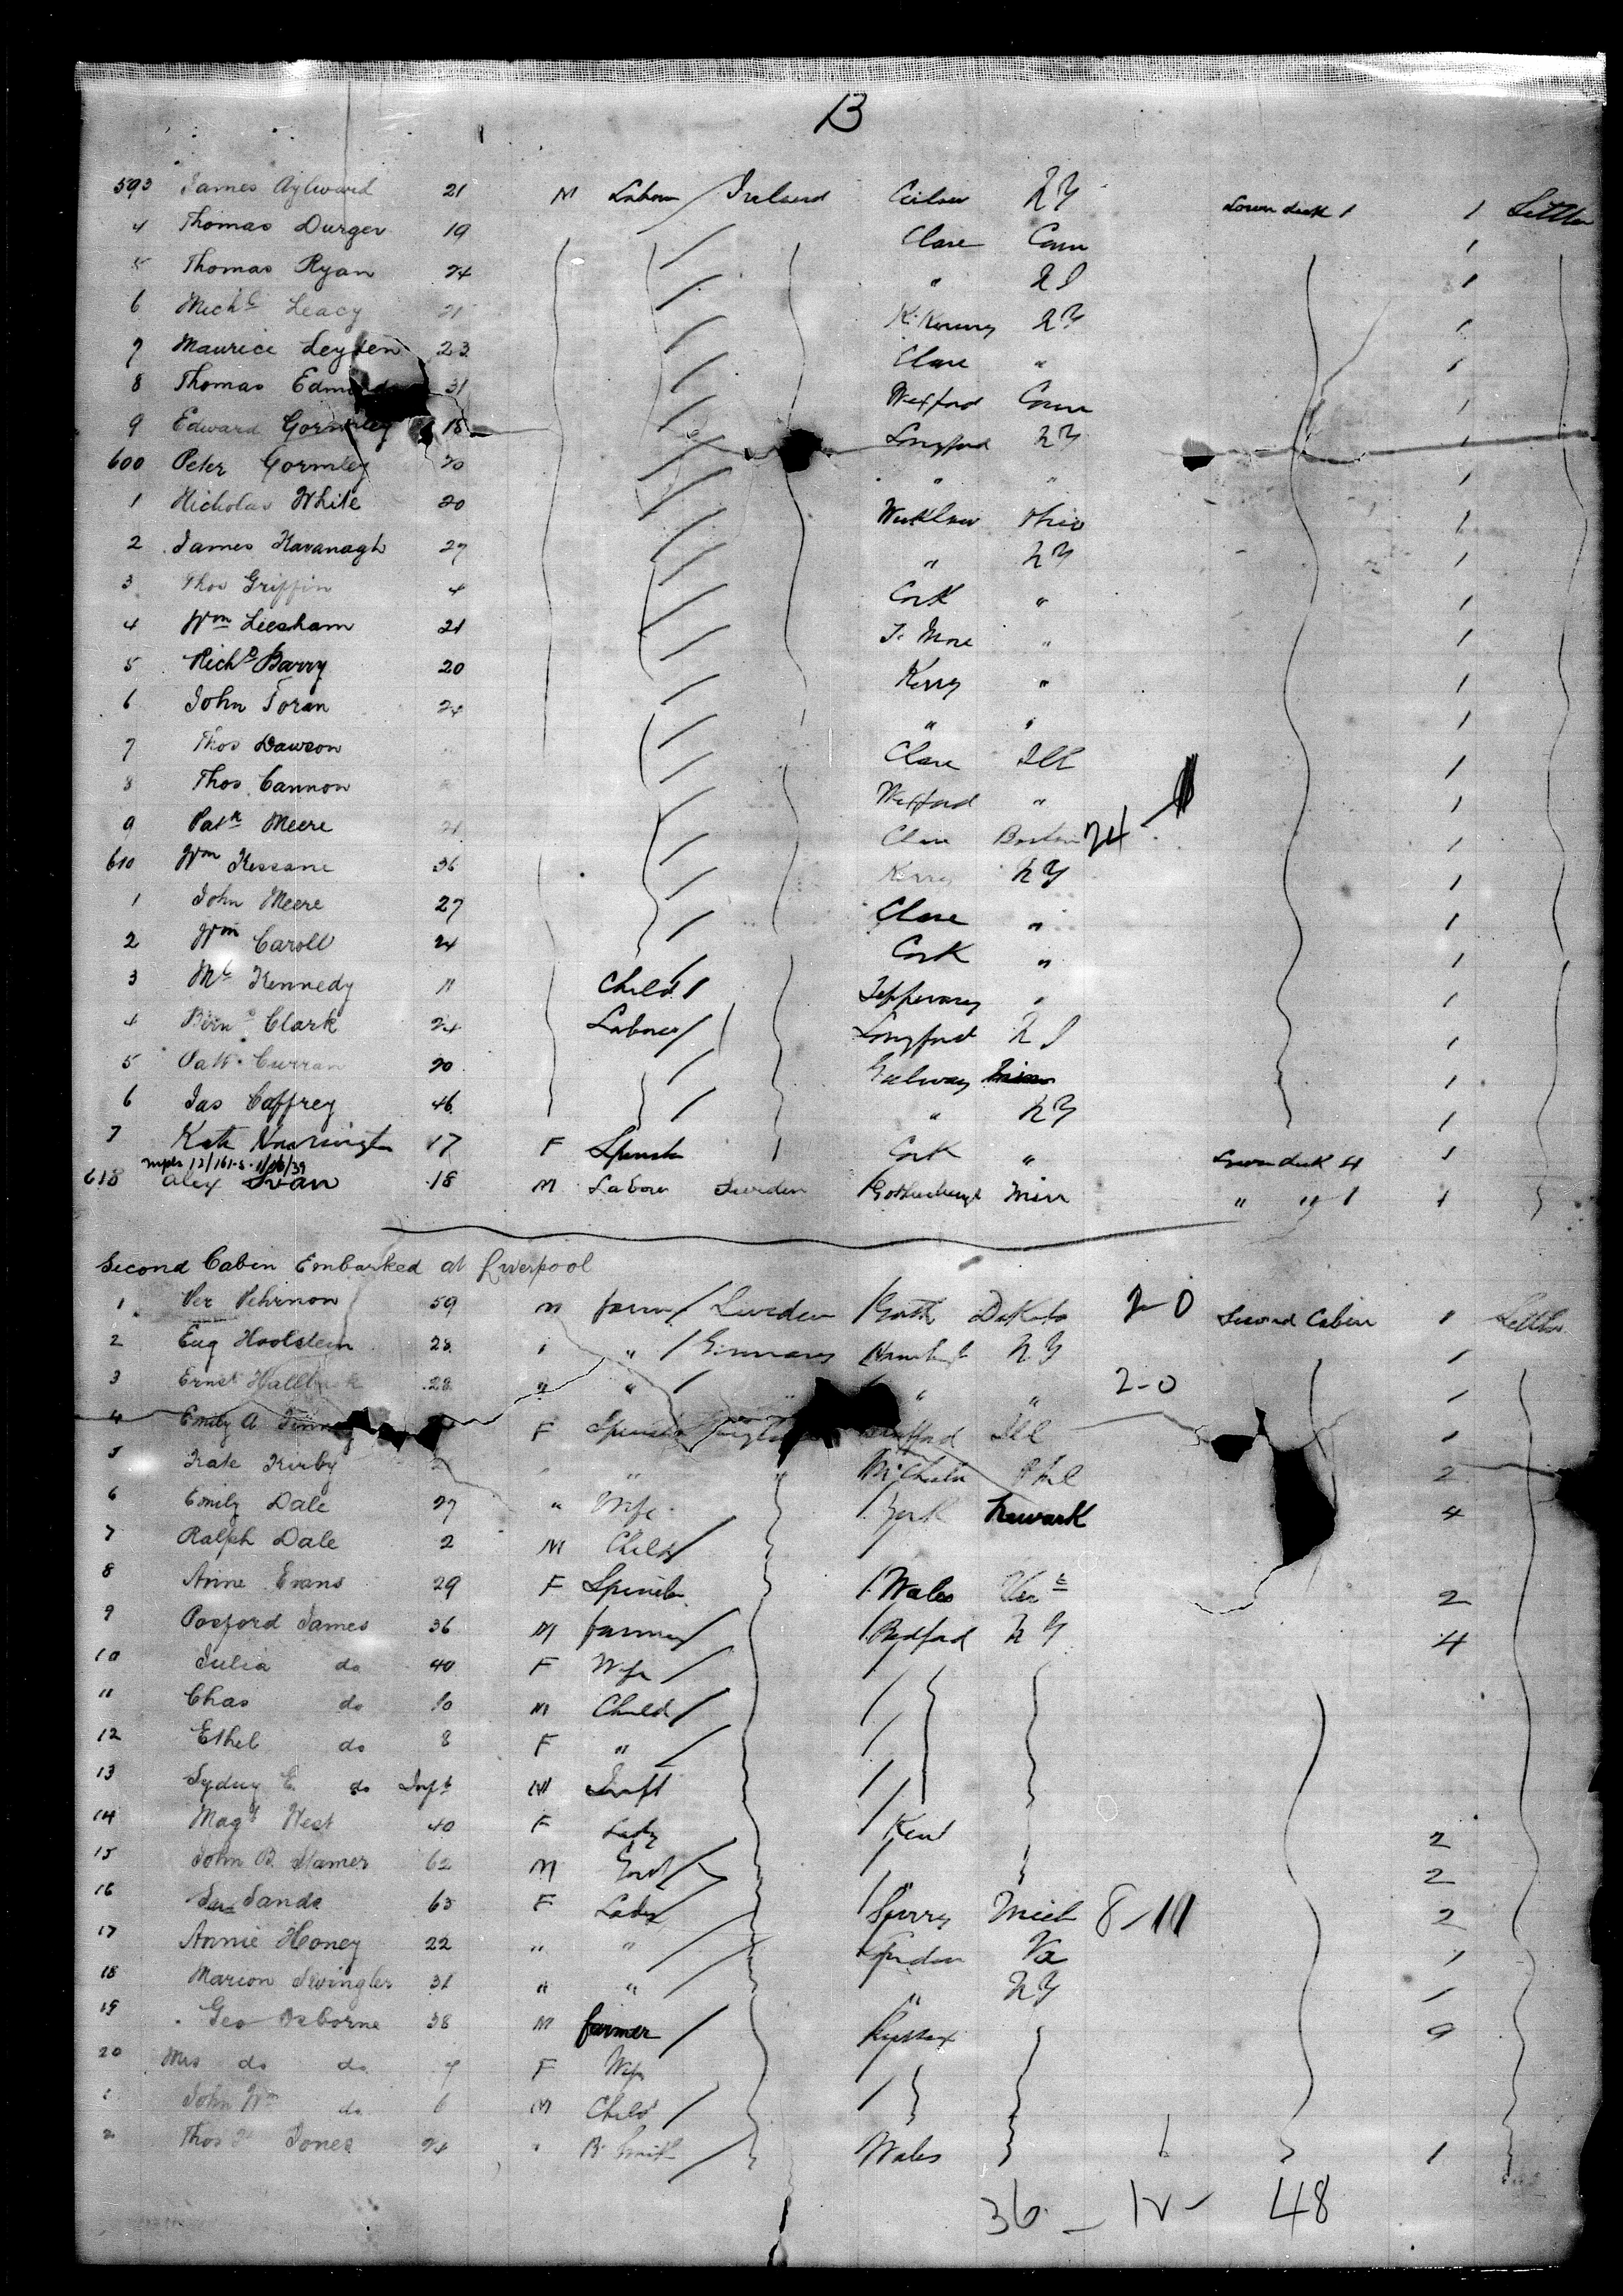 B
593 James Aylward 21 M Labour Ireland N Y Lower deck 1 1 Settler
4 Thomas Durgev 19 Clare Conn 1
5 Thomas Ryan 24 " R I 1
6 Michl Leacy 21 K. Kenny N Y 1
7 Maurice Leyden 23 Clare " 1
8 Thomas 31 Wexford Conn 1
9 Edward Gormley 18 Longford N Y 1
600 Peter Gormley 20 " " 1
1 Nicholas White 20 Wicklow Ohio 1
2 James Kavanagh 27 " N Y 1
3 Thos Griffin 4 Cork " 1
4 Wm Leesham 21 " 1
5 Richd Barry 20 Kerry " 1
6 John Foran 24 " " 1
7 Thos Dawson Clare Ill 1
8 Thos Cannon Wexford " 1
9 Patk Meere 21 Clare Boston 24 1
610 Wm Kessane 36 Kerry N Y 1
1 John Meere 27 Clare " 1
2 Wm Caroll 24 Cork " 1
3 Ml Kennedy 11 Child Tipperary " 1
4 Bernd Clark 24 Labour Longford R I 1
5 Patk Curran 20 Galway 1
6 Jas Caffrey 46 " N Y 1
7 Kate 17 F Spinster Cork " Lower deck 4 1
618 Alex Swan 18 M Labour Sweden Gothenburg Minn " " 1 1
Second Cabin Embarked at Liverpool
1 Per Pehrnon 59 M farmer Sweden Goth Dakota 2-0 Second Cabin 1 Settler
2 Eug Hoolstein 28 " " Germany Hamburg N Y 1
3 Ernst 28 " " " " 2-0 1
4 Emily A F Spinster Ill 1
5 Kate Kirby " " 2
6 Emily Dale 27 " Wife York Newark 4
7 Ralph Dale 2 M Child
8 Anne Evans 29 F Spinster Wales 2
9 Posford James 36 M farmer Bedford N Y 4
10 Julia do 40 F Wife
11 Chas do 10 M Child
12 Ethel do 8 F "
13 Sydney E. do Inft M Inft
14 Magt West 40 F Lady Kent 2
15 John B. Stamer 62 M " 2
16 Sands 63 F Lady Surrey Mich 8-11 2
17 Annie Honey 22 " " London Va 1
18 Marion Swingler 31 " " " N Y 1
19 Geo Osborne 38 M farmer Sussex 9
20 Mrs do do F Wife
1 John Wm do 6 M Child
2 Thos Jones 24 " B. Smith Wales 1
36 - 12 - 48